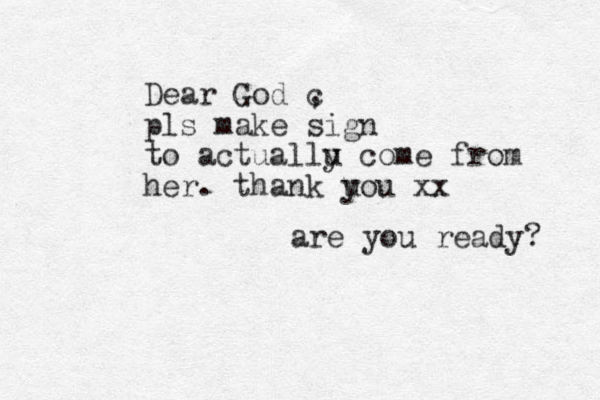 Dear God ,
pls make sign
to actually come from
her. thank you xx
are you ready?